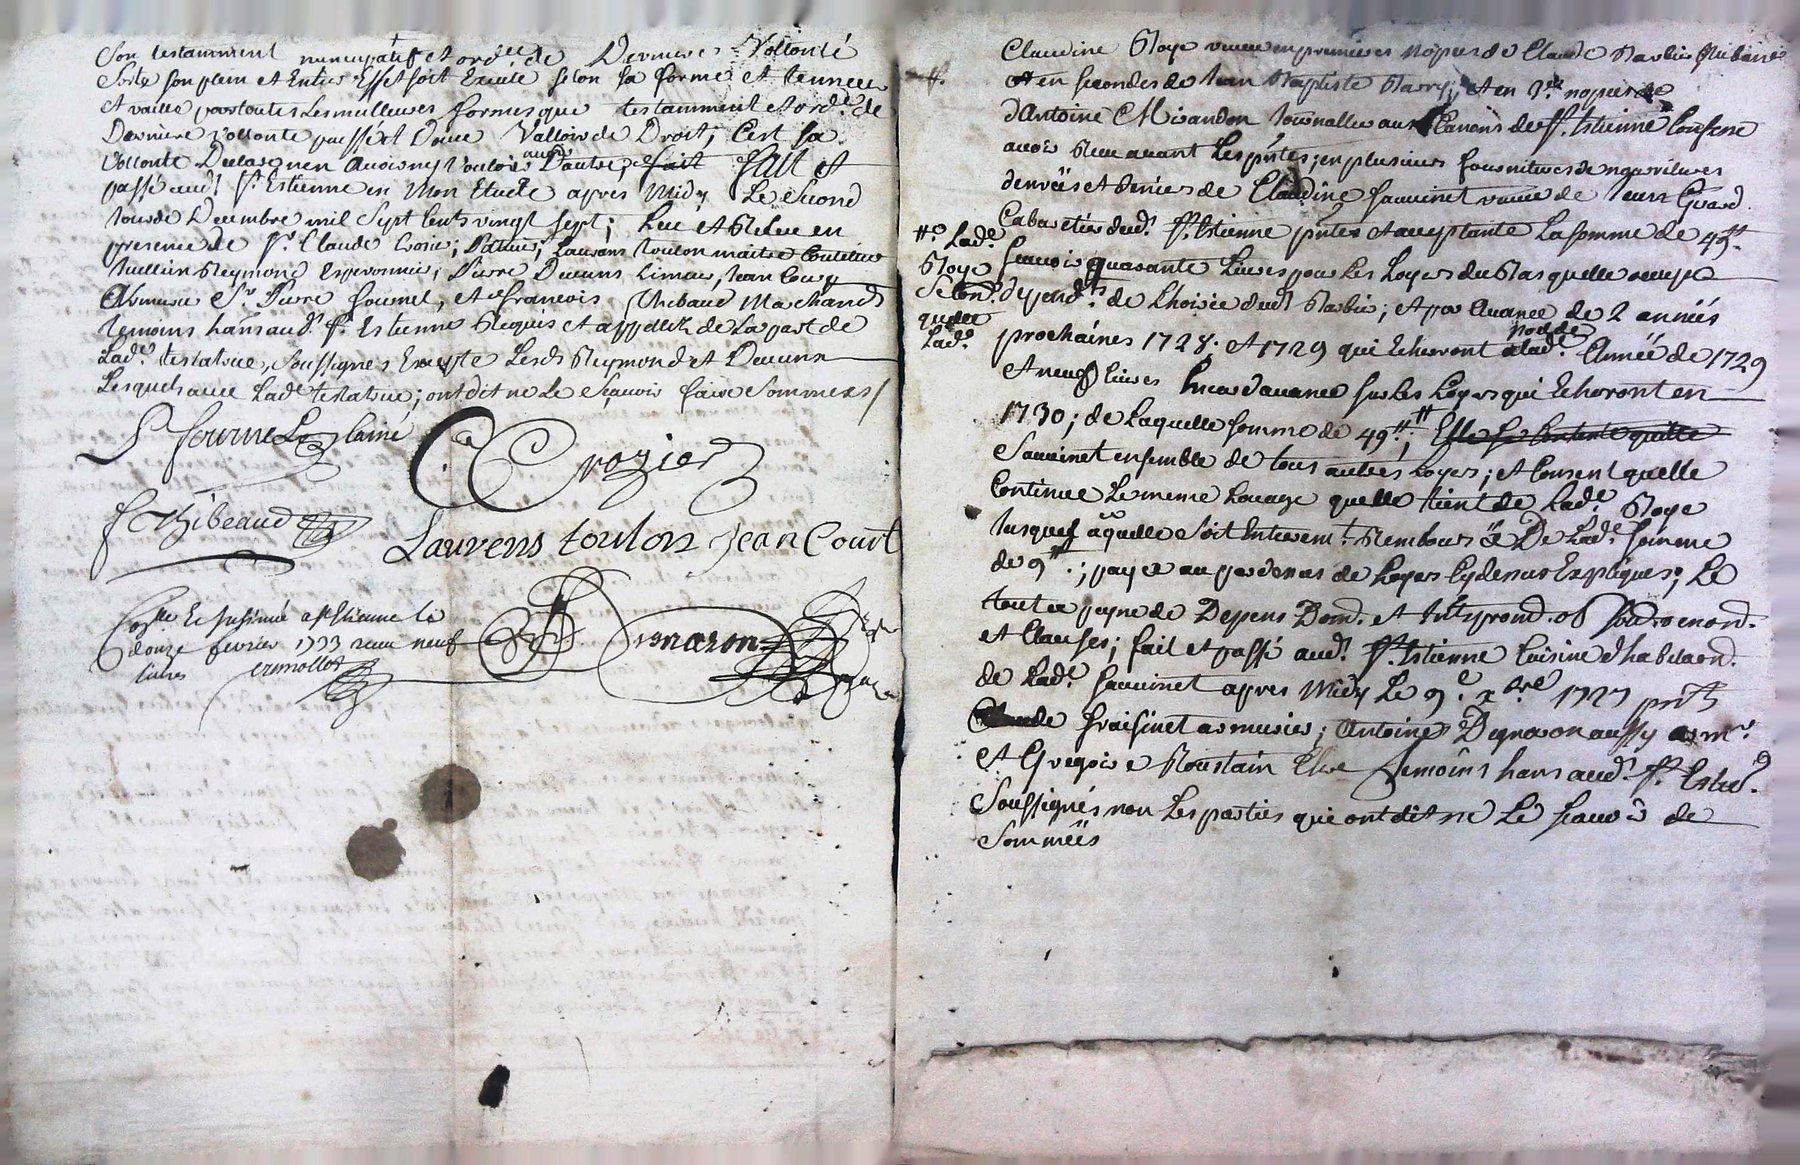 Son testamment nuncupatif et ord.re de Derniere Vollonté
Sorte son plein et Entier Effet soit Exécuté selon sa forme et tenneur
Et vaille par toutes les meilleures formes que testamment et ord.e de
Derniere vollonte puissent Doive Valloir de Droit; C'est sa
Vollonté Declarant Vouloir aucun D'autre; fait fait et
passé aud.t S.t Estienne en Mon Etude apres Midy Le Second
Jour de Decembre mil Sept Cents vingt Sept; Leu et Releu en
presence de S.r Claude Crosier; Laurans toulon maitre Coutellier
Jullien Reymond Esperonnier; Pierre Ducuns Limeur, Jean Court
Armurier S.r Pierre fournel, et françois Thibaud Marchands
temoins hans aud.t S.t Estienne Requis et appellez de La part de
Lad.e testatrice, Soussignes Excepte Lesd.s Reymond et Ducuns
Lesquels avec Lad.e testatrice; ont dit ne Le Scavoir faire Sommes /
P fournel laîné
C Crozier
f Thibeaud
Laurens toulon Jean Court
Con.lle Et Insinué a St Etienne le
douze fevrier 1733 receu neuf
livres
Claudine Roye veuve en premieres Nopces de Claude Barlier Rubanier
et en secondes de Jean Baptiste Barry; Et en 3.e nopces de
d'Antoine Mirandon Journallier aux Canons de S.t Estienne Confesse
avoir Receu avant Les p.ntes; en plusieurs fournitures de nourritures
denrées et deniers de Claudine Sauvinet veuve de Jean Girard
Cabaretier dud.t S.t Estienne p.nte et acceptante La somme de 49.tt
#.o Lad.e
Roye
Selon
quelle
Lad.e
Scavoir quarante Livres pour Les Loyers du Bas quelle occupe
depend.t de L'hoirie dud.t Barlier; Et par avance de 2 années
prochaines 1728; et 1729 qui Echeront a lad.e Année de 1729
Et neuf livres d'avance sur Les Loyers qui Echeront en
1730; de Laquelle somme de 49.tt; Elle se Contente quitte
Sauvinet ensemble de tous autres Loyers; et Consent quelle
Continue Le meme Louage quelle tient de Lad.e Roye
Jusques a quelle Soit Entierem.t Remboursée De Lad.e Somme
de 9.tt; payée au par dessus de Loyers Cy dessus Expliqués; Le
tout a peyne de Depens Dom. et Inter
et Clauses; fait et passé aud.t S.t Estienne Cuisine d'habitaon.
de Lad.e Sauvinet apres Midy Le 9.e x.bre 1727 p.nts
Claude fraisinet armurier; Antoine aussy arm.r
et Gregoire Roustain Clerc temoins hans aud.t S.t Estie.
Soussignés non Les parties qui ont dit ne Le Scavoir de
Sommées